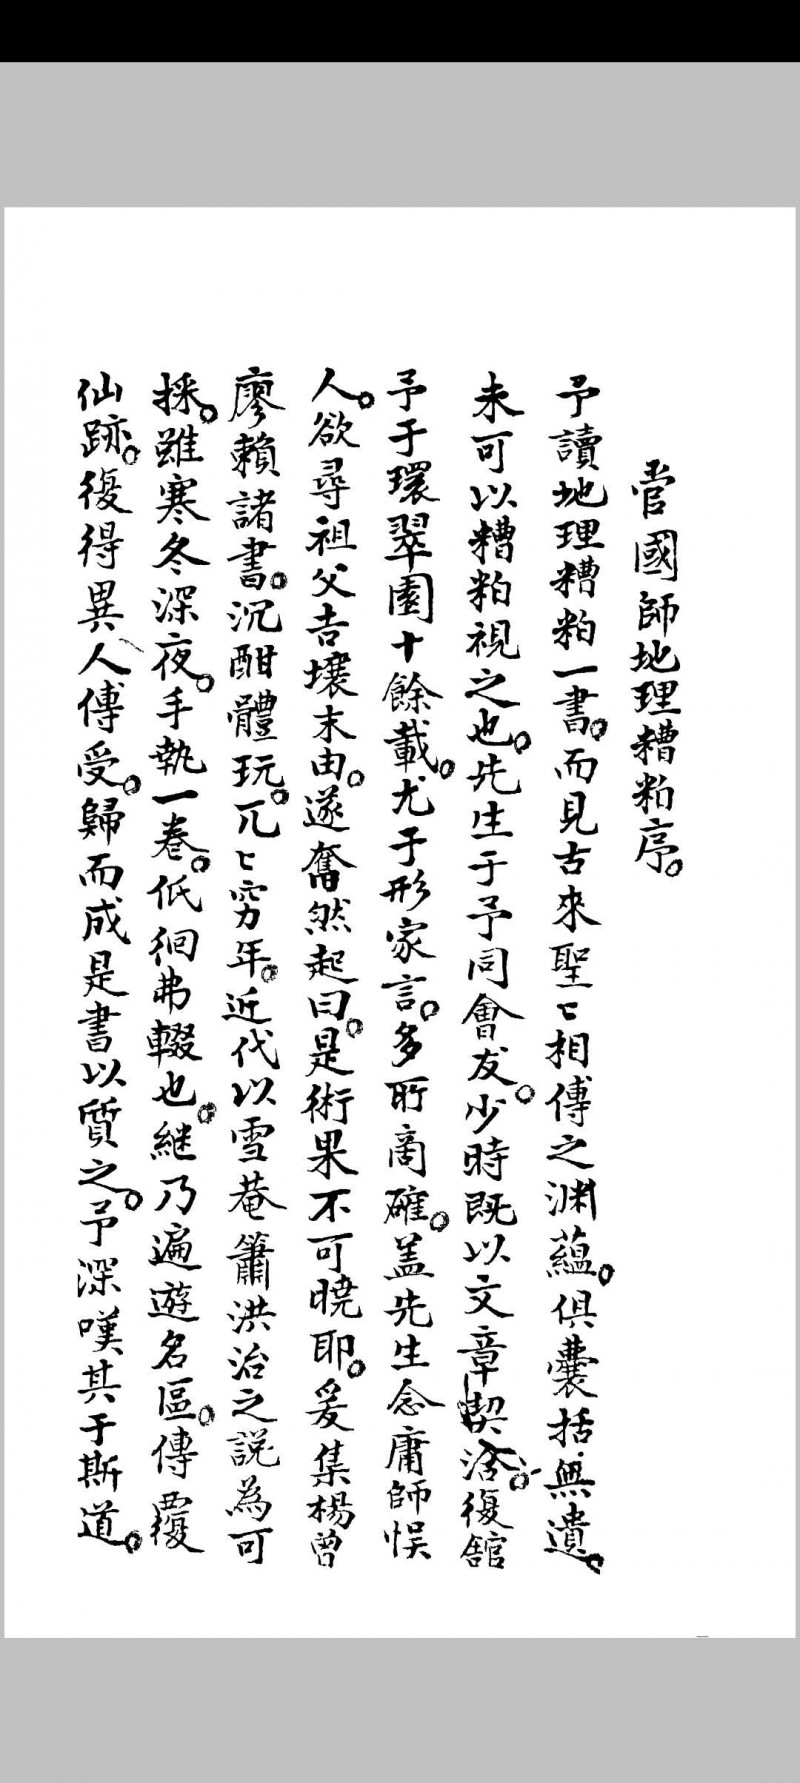 管國師地理糟粕序。
予讀地理糟粕一書。而見古來聖〻相傳之渊蘊。俱囊括無遺。
未可以糟粕視之也。先生于予同會友。少時既以文章契洽。復館
予于環翠園十餘載。尤于形家言。多所商確。盖先生念庸師悞
人。欲尋祖父吉壤末由。遂奮然起曰。是術果不可曉耶。爰集楊曾
廖賴諸書。沉酣體玩。兀〻窮年。近代以雪菴簫洪治之說為可
採。雖寒冬深夜。手執一卷。低徊弗輟也。継乃遍遊名區。傳覆
仙跡。復得異人傳受。歸而成是書以質之。予深嘆其于斯道。